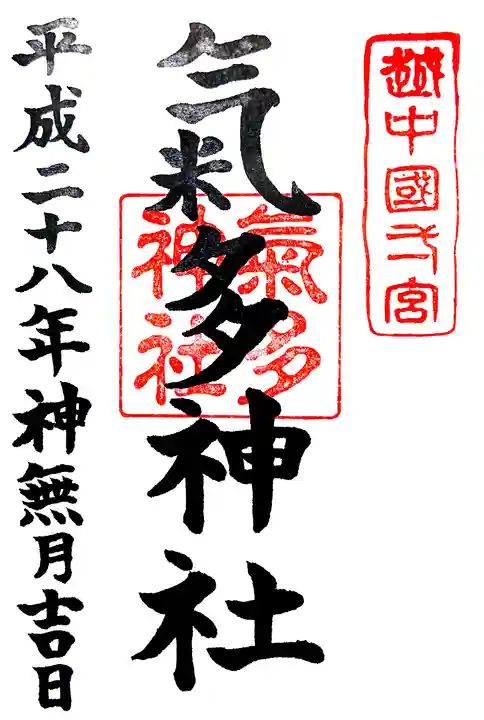 越中國一宮
氣多神社
氣多
神社
平成二十八年神無月吉日